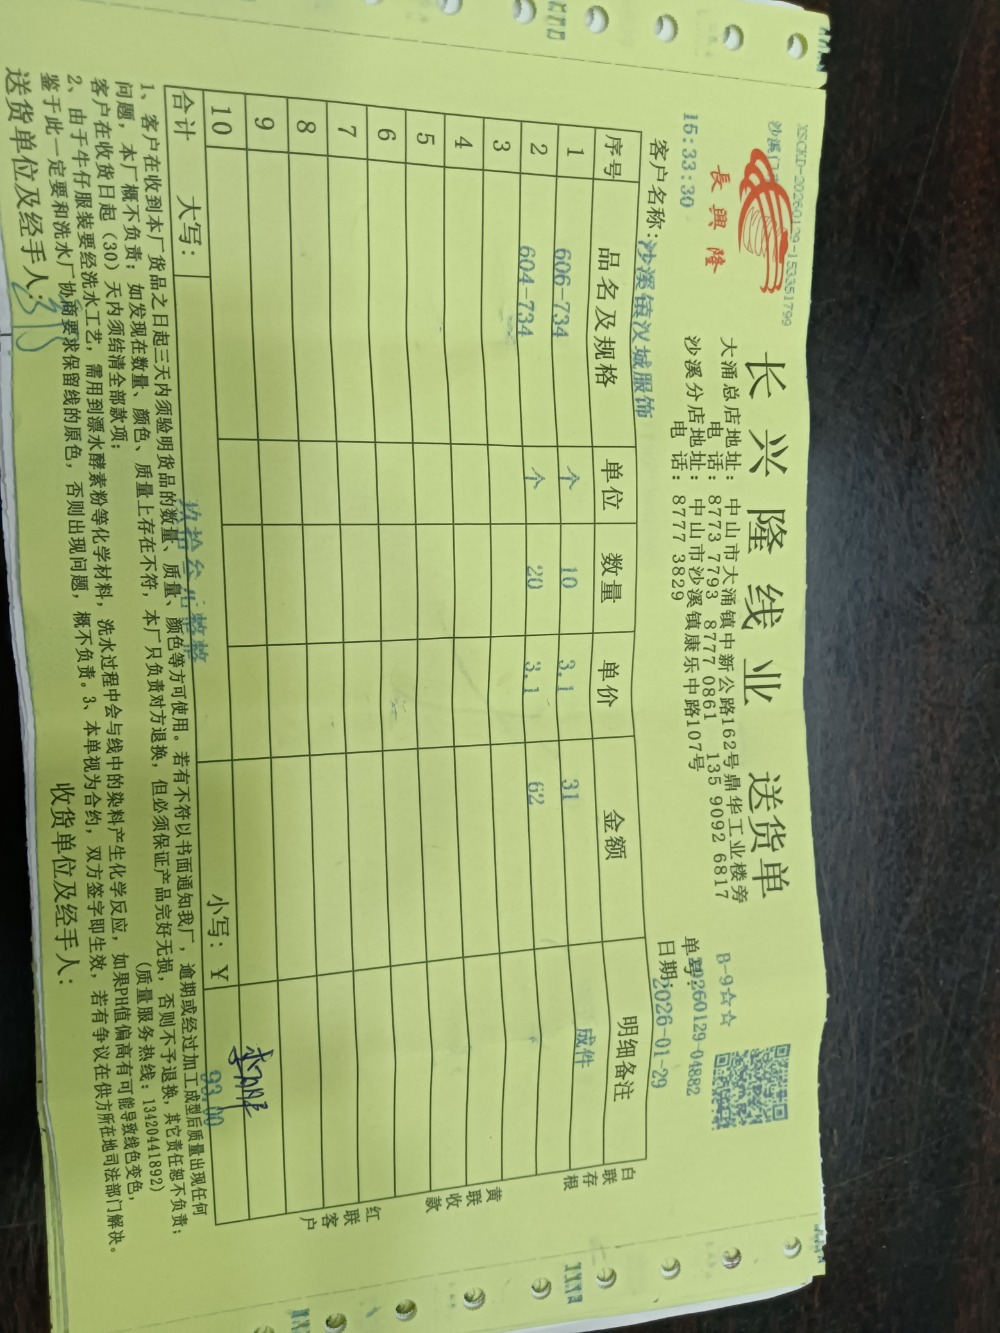 XSCKD-20260129-153351799
長興隆
长兴隆线业 送货单
B-9☆☆
大涌总店地址：中山市大涌镇中新公路162号鼎华工业楼旁
电 话：8773 7793 8777 0861 135 9092 6817
沙溪分店地址：中山市沙溪镇康乐中路107号
电 话：8777 3829
单号:20260129-04882
15:33:30
日期:2026-01-29
客户名称:沙溪镇汉城服饰
序号 品名及规格 单位 数量 单价 金额 明细备注
1 606-734 个 10 3.1 31 成件
2 604-734 个 20 3.1 62
3
4
5
6
7
8
9
10
合计 大写： 玖拾叁 整 小写：¥ 93.00
白联存根
黄联收款
红联客户
1、客户在收到本厂货品之日起三天内须验明货品的数量、质量、颜色等方可使用。若有不符以书面通知我厂，逾期或经过加工成型后质量出现任何
问题，本厂概不负责；如发现在数量、颜色、质量上存在不符，本厂只负责对方退换，但必须保证产品完好无损，否则不予退换，其它责任恕不负责；
客户在收货日起（30）天内须结清全部款项； （质量服务热线：13420441892）
2、由于牛仔服装要经洗水工艺，需用到漂水酵素粉等化学材料，洗水过程中会与线中的染料产生化学反应，如果PH值偏高有可能导致线色变色，
鉴于此一定要和洗水厂协商要求保留线的原色，否则出现问题，概不负责。3、本单视为合约，双方签字即生效，若有争议在供方所在地司法部门解决。
送货单位及经手人： 收货单位及经手人：